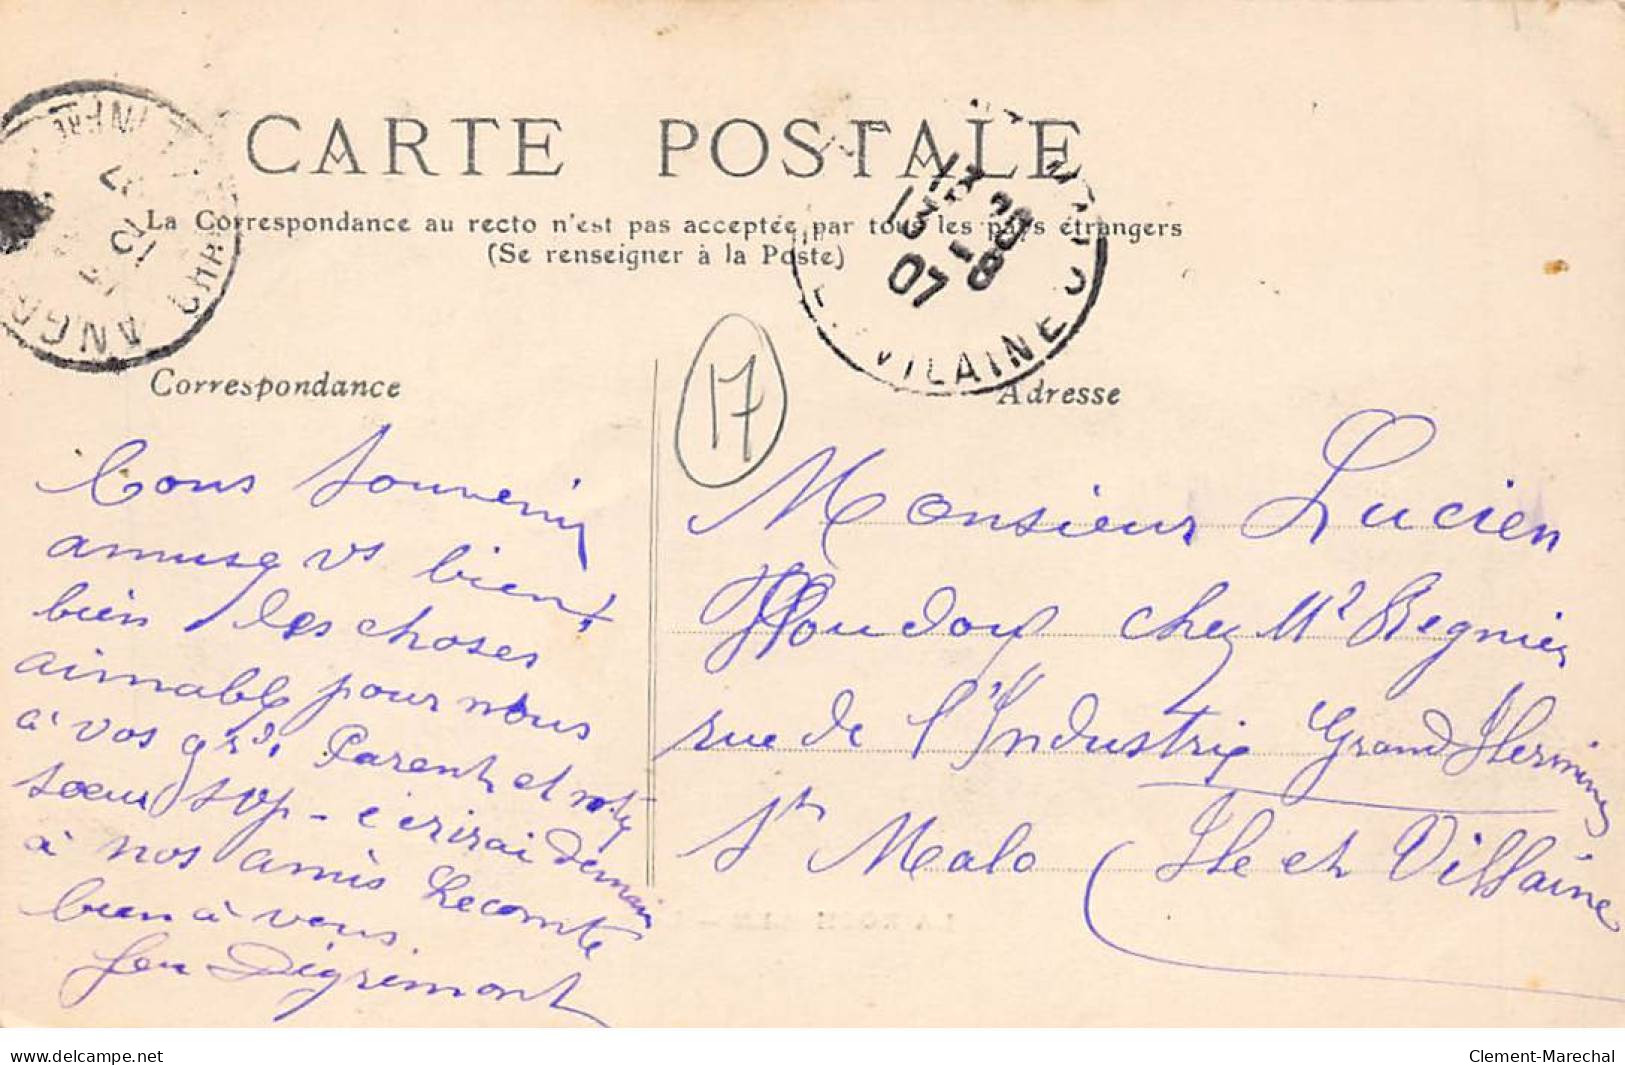 CARTE POSTALE
La Correspondance au recto n'est pas acceptée par tous les pays étrangers
(Se renseigner à la Poste)
13
07 8
VILAINE
17
Correspondance
Bons Souvenirs
amusez vs bien
bien les choses
aimable pour nous
à vos grds Parents et votre
soeur SVP - écrirai demain
à nos amis Lecomte
bien à vous.
Digrimont
Adresse
Monsieur Lucien
Houdoux chez Mr Regnier
rue de l'Industrie Grand Hermine
St Malo (Ile et Villaine
delcampe.net
Clement-Marechal